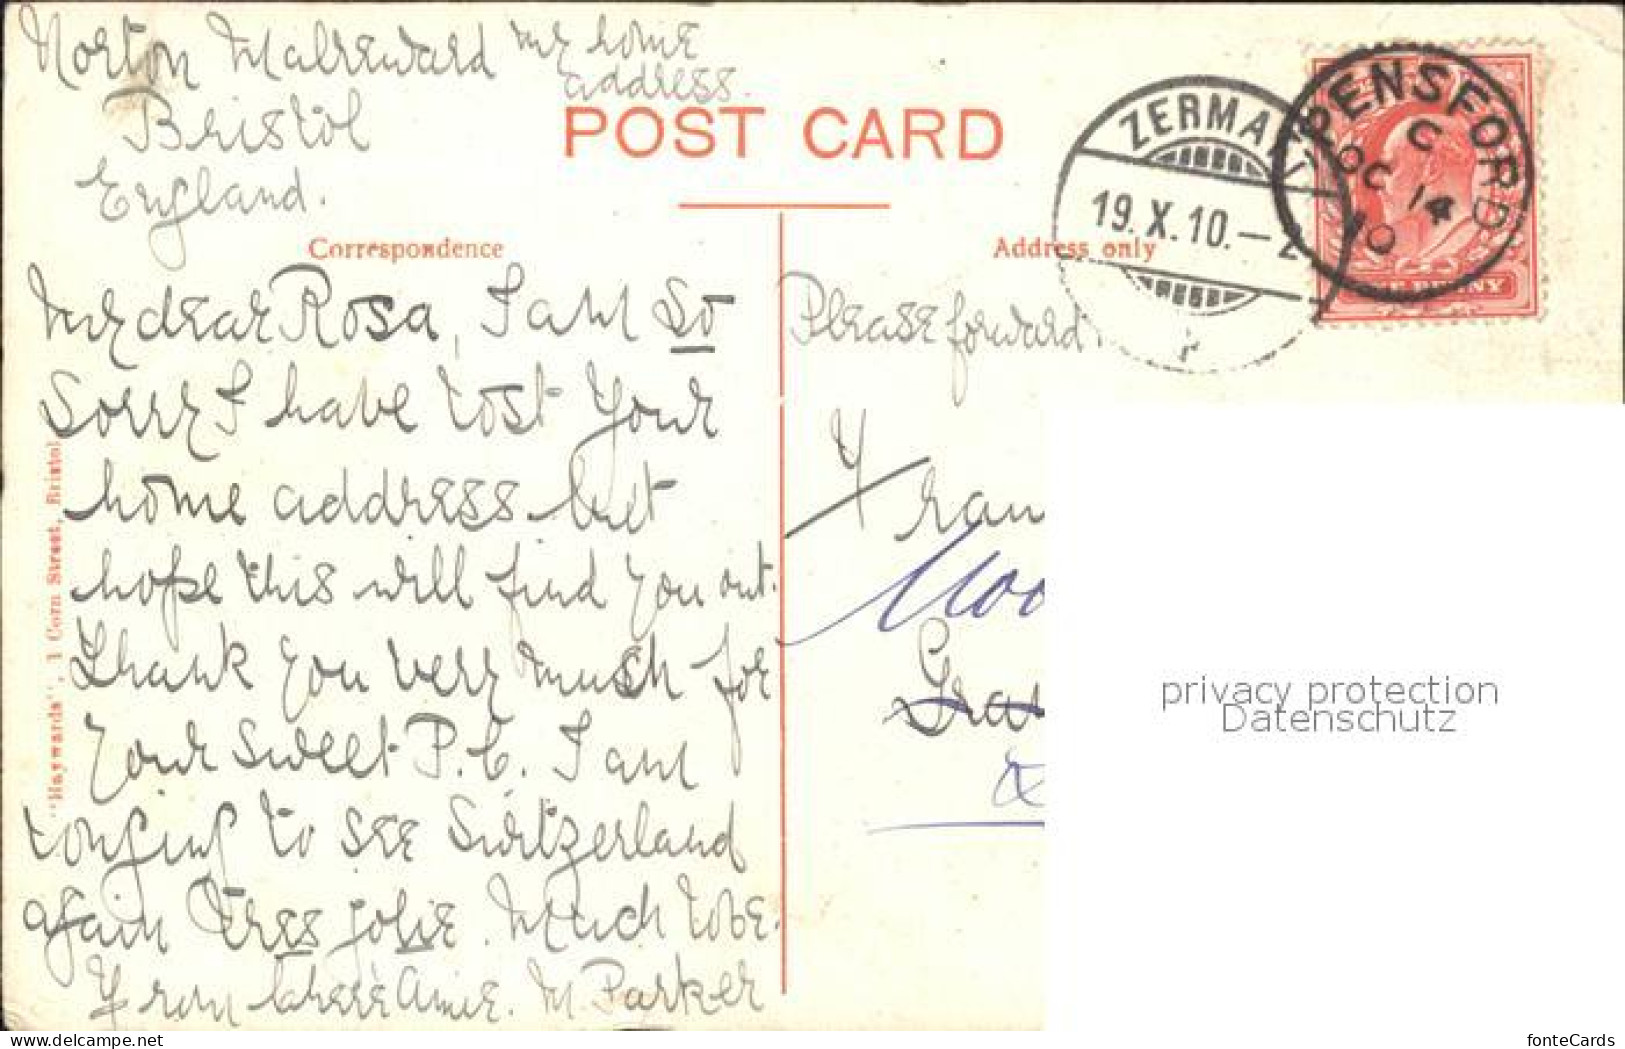 Norton Malreward my home
address.
Bristol
England.
POST CARD
Correspondence
Address only
ZERMATT
19.X.10.—2
PENSFORD
C
OC 14
10
ONE PENNY
My dear Rosa, I am so
sorry I have lost your
home address but
hope this will find you out.
Thank you very much for
your sweet P.C. I am
longing to see Switzerland
again très jolie. Much love.
From chère amie. M. Parker
"Haywards", 1 Corn Street, Bristol
Please forward.
privacy protection
Datenschutz
www.delcampe.net
fonteCards